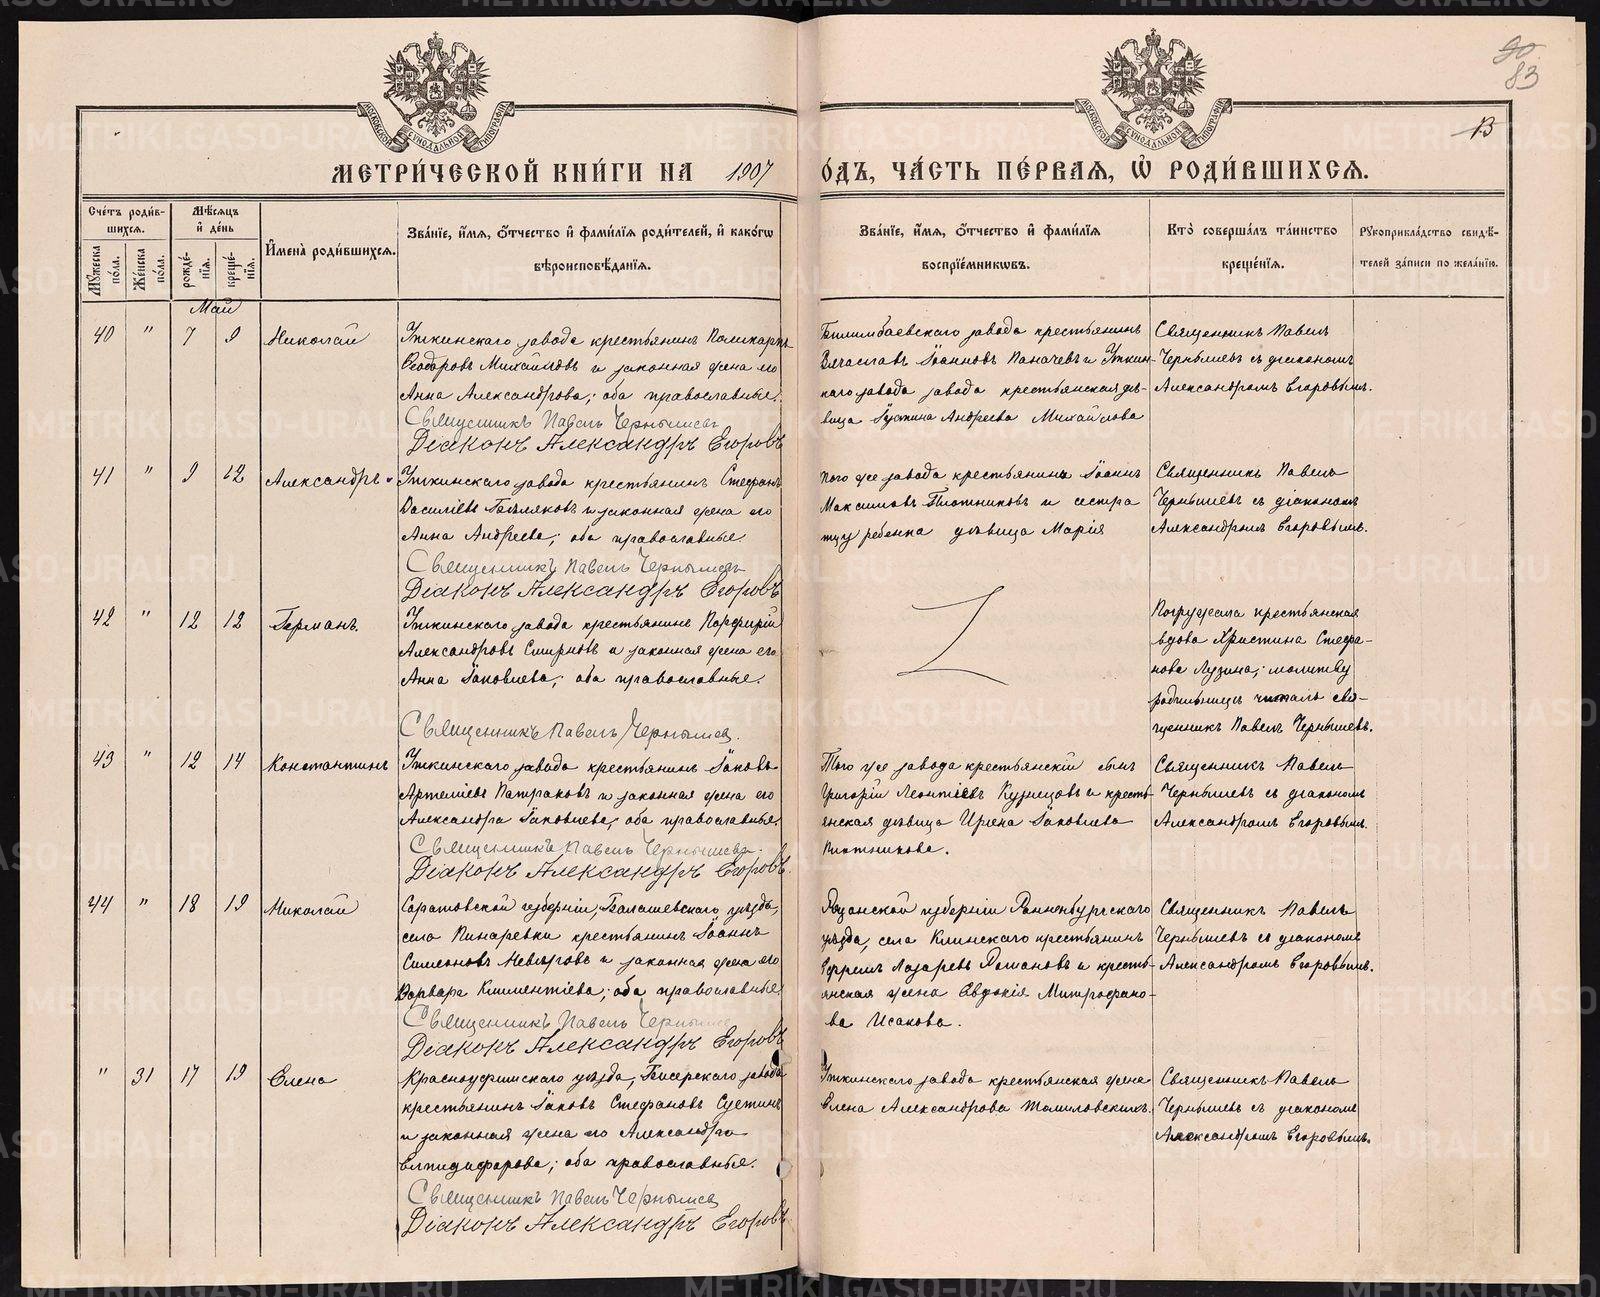 90
83
13
МОСКОВСКОЙ СѴНОДАЛЬНОЙ ТИПОГРАФІИ
МОСКОВСКОЙ СѴНОДАЛЬНОЙ ТИПОГРАФІИ
МЕТРИ́ЧЕСКОЙ КНИ́ГИ НА 1907
О́ДЪ, ЧА́СТЬ ПЕ́РВАЯ, Ѽ РОДИ́ВШИХСѦ.
Сче́тъ роди́в-
шихсѧ.
Мꙋ́жеска по́ла.
Же́нска по́ла.
Мѣ́сѧцъ и҆ де́нь
рожде́-
нїѧ.
креще́-
нїѧ.
И҆мена̀ роди́вшихсѧ.
Зва́нїе, и҆́мѧ, ѻ҆́тчество и҆ фами́лїѧ роди́телей, и҆ како́гѡ
вѣроисповѣ́данїѧ.
Зва́нїе, и҆́мѧ, ѻ҆́тчество и҆ фами́лїѧ
воспрїе́мникѡвъ.
Кто̀ соверша́лъ та́инство
креще́нїѧ.
Рꙋкоприкла́дство свидѣ́-
телей за́писи по жела́нїю.
Май
40 " 7 9 Николай
Уткинскаго завода крестьянинъ Поликарпъ
Ѳеодоровъ Михайловъ и законная жена его
Анна Александрова; оба православные.
Священникъ Павелъ Чернышевъ
Діаконъ Александръ Егоровъ
Билимбаевскаго завода крестьянинъ
Вячеславъ Іоанновъ Паначевъ и Уткин-
скаго завода завода крестьянская дѣ-
вица Іустина Андреева Михайлова
Священникъ Павелъ
Чернышевъ съ діакономъ
Александромъ Егоровымъ.
41 " 9 12 Александръ
Уткинскаго завода крестьянинъ Стефанъ
Васильевъ Бѣляковъ и законная жена его
Анна Андреева; оба православные.
Священникъ Павелъ Чернышевъ
Діаконъ Александръ Егоровъ
того же завода крестьянинъ Іоаннъ
Максимовъ Плотниковъ и сестра
отцу ребенка дѣвица Марія
Священникъ Павелъ
Чернышевъ съ діакономъ
Александромъ Егоровымъ.
42 " 12 12 Германъ.
Уткинскаго завода крестьянинъ Порфирій
Александровъ Смирновъ и законная жена его
Анна Іаковлева; оба православные.
Священникъ Павелъ Чернышевъ.
Погружала крестьянская
вдова Христина Стефа-
нова Лузина; молитву
родильницѣ читалъ свя-
щенникъ Павелъ Чернышевъ.
43 " 12 14 Константинъ
Уткинскаго завода крестьянинъ Іаковъ
Артеміевъ Патраковъ и законная жена его
Александра Іаковлева; оба православные.
Священникъ Павелъ Чернышевъ.
Діаконъ Александръ Егоровъ.
Того же завода крестьянскій сынъ
Григорій Леонтіевъ Кузнецовъ и кресть-
янская дѣвица Ирина Іаковлева
Плотникова.
Священникъ Павелъ
Чернышевъ съ діакономъ
Александромъ Егоровымъ.
44 " 18 19 Николай
Саратовской губерніи, Балашевскаго уѣзда,
села Пинаревки крестьянинъ Іоаннъ
Симеоновъ Невѣровъ и законная жена его
Варвара Климентіева; оба православные.
Священникъ Павелъ Чернышевъ
Діаконъ Александръ Егоровъ
Рязанской губерніи Ранненбургскаго
уѣзда, села Клинскаго крестьянинъ
Ефремъ Лазаревъ Романовъ и кресть-
янская жена Евдокія Митрофано-
ва Исакова.
Священникъ Павелъ
Чернышевъ съ діакономъ
Александромъ Егоровымъ.
" 31 17 19 Елена
Красноуфимскаго уѣзда, Бисерскаго завода
крестьянинъ Іаковъ Стефановъ Суетинъ
и законная жена его Александра
Елпидифорова; оба православные.
Священникъ Павелъ Чернышевъ
Діаконъ Александръ Егоровъ
Уткинскаго завода крестьянская жена
Елена Александрова Томиловскихъ.
Священникъ Павелъ
Чернышевъ съ діакономъ
Александромъ Егоровымъ.
METRIKI.GASO-URAL.RU